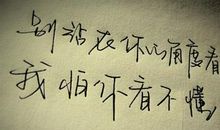 别站在你的角度看
我怕你看不懂